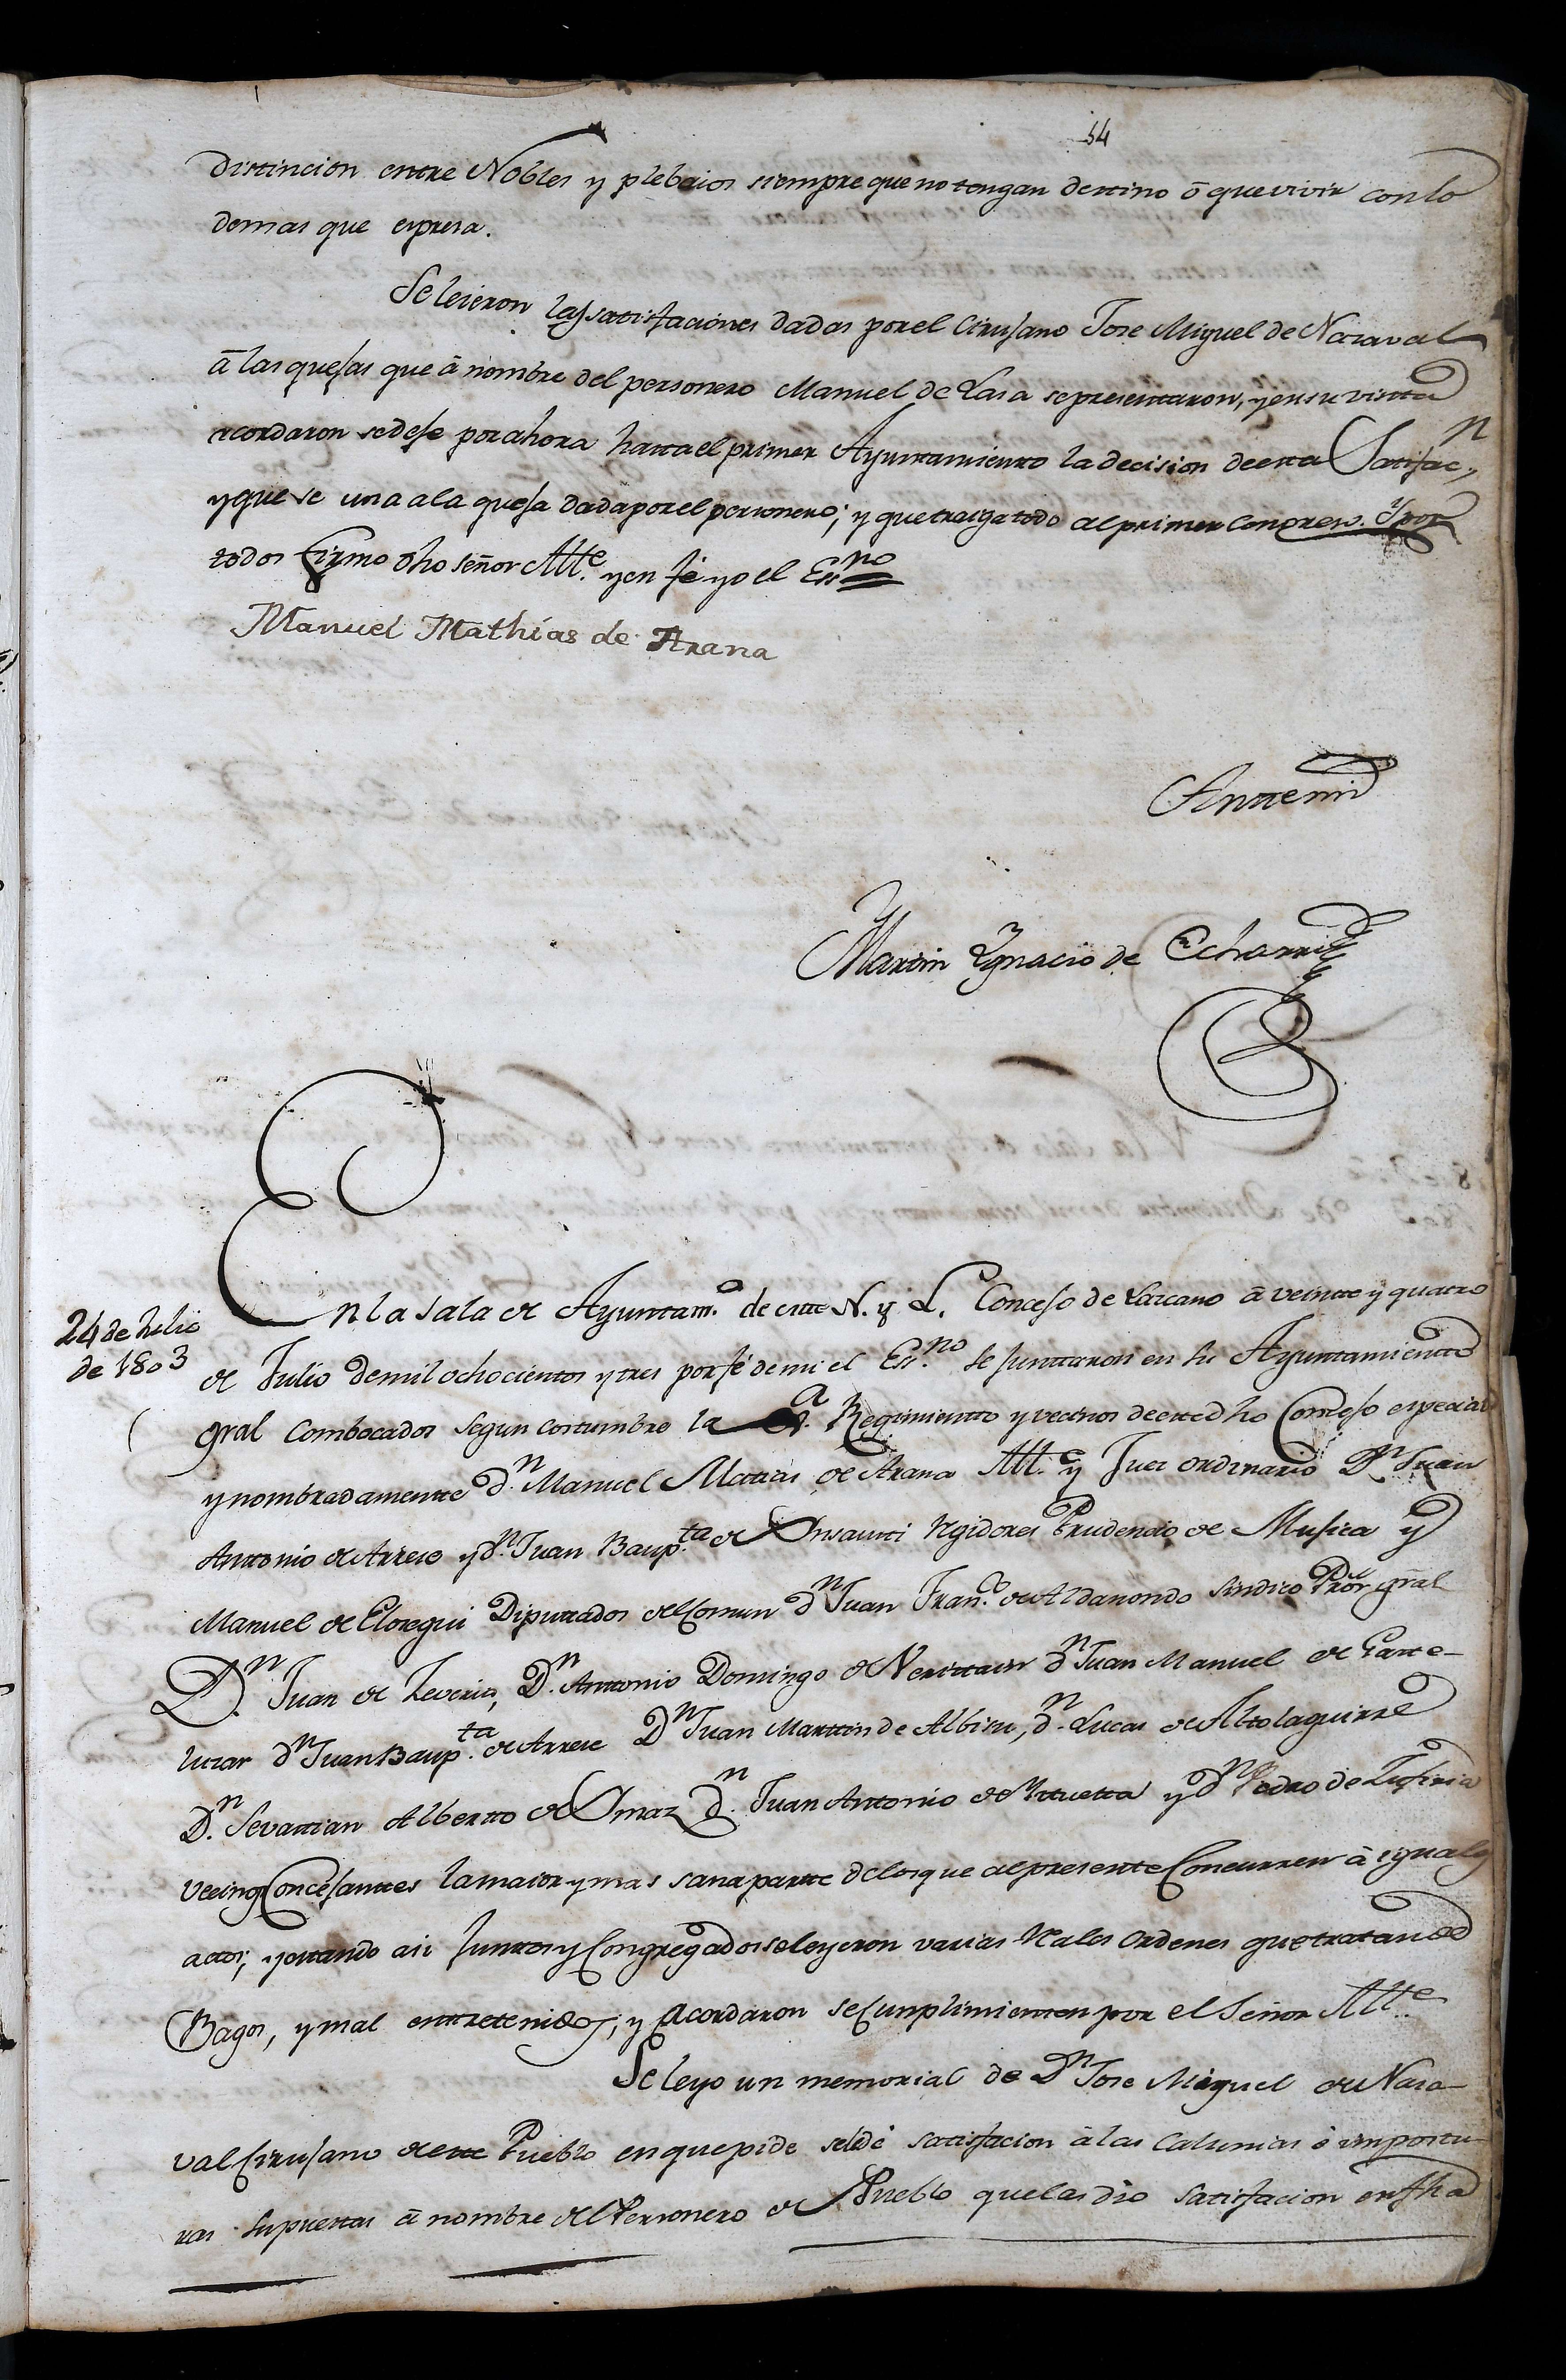 54
Distincion entre Nobles y plebeios siempre que no tengan destino ô que vivir con lo
demas que expresa.
Se leieron las satisfaciones dadas por el Cirujano Jose Miguel de Nazaval
â las quejas que â nombre del personero Manuel de Lasa se presentaron, y en su vistta
acordaron se deje por ahora hasta el primer Ayuntamiento la decision de esta Satisfac.n,
y que se una a la queja dada por el personero; y que traiga todo al primer Congreso. Y por
todos firmo dho señor Alte. y en fe yo el Es.no
Manuel Mathias de Arana
Antemi
Martin Ygnacio de Echarri
24 de Julio
de 1803
En la sala de Ayuntam.o de este N. y L. Concejo de Lazcano â veintte y quatro
de Julio de mil ochocientos y tres por fé de mi el Es.no se junttaron en su Ayuntamientto
gral Combocados segun costumbre la Regimientto y vecinos de este dho Concejo especial
y nombradamentte d.n Manuel Matias de Arana Alt.e y Juez ordinario D.n Juan
Anttonio de Arrese y d.n Juan Baup.ta de Insausti Rgidores Prudencio de Mujica y
Manuel de Eloregui Diputtados del Comun d.n Juan Fran.co de Aldanondo Sindico Pror gral
D.n Juan de Zeverio, D.n Anttonio Domingo de Verittain d.n Juan Manuel de Gaste-
luzar d.n Juan Baup.ta de Arrese D.n Juan Marttin de Albisu, d.n Lucas de Altolaguirre
D.n Sevastian Albertto de Imaz D.n Juan Antonio de Yttuetta y d.n Pedro de
vecinos Concejanttes la maior y mas sana partte de los que al presente Concurren â iguales
actos; y estando asi Junttos y Congregados se leyeron varias Rales Ordenes que tratan de
Bagos, y mal entretenidos; y acordaron se Cunplimientten por el Señor Alt.e
Se leyo un memorial de D.n Jose Miguel de Naza-
val Cirujano de este Pueblo en que pide se le dé satisfacion â las Calumnias é impostu-
ras supuestas â nombre del Personero de Pueblo que las dio satisfacion en fha